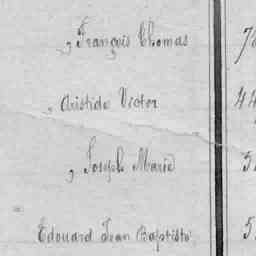 , François Thomas 7
, Aristide Victor 44
, Joseph Marie 5
Edouard Jean Baptiste 5